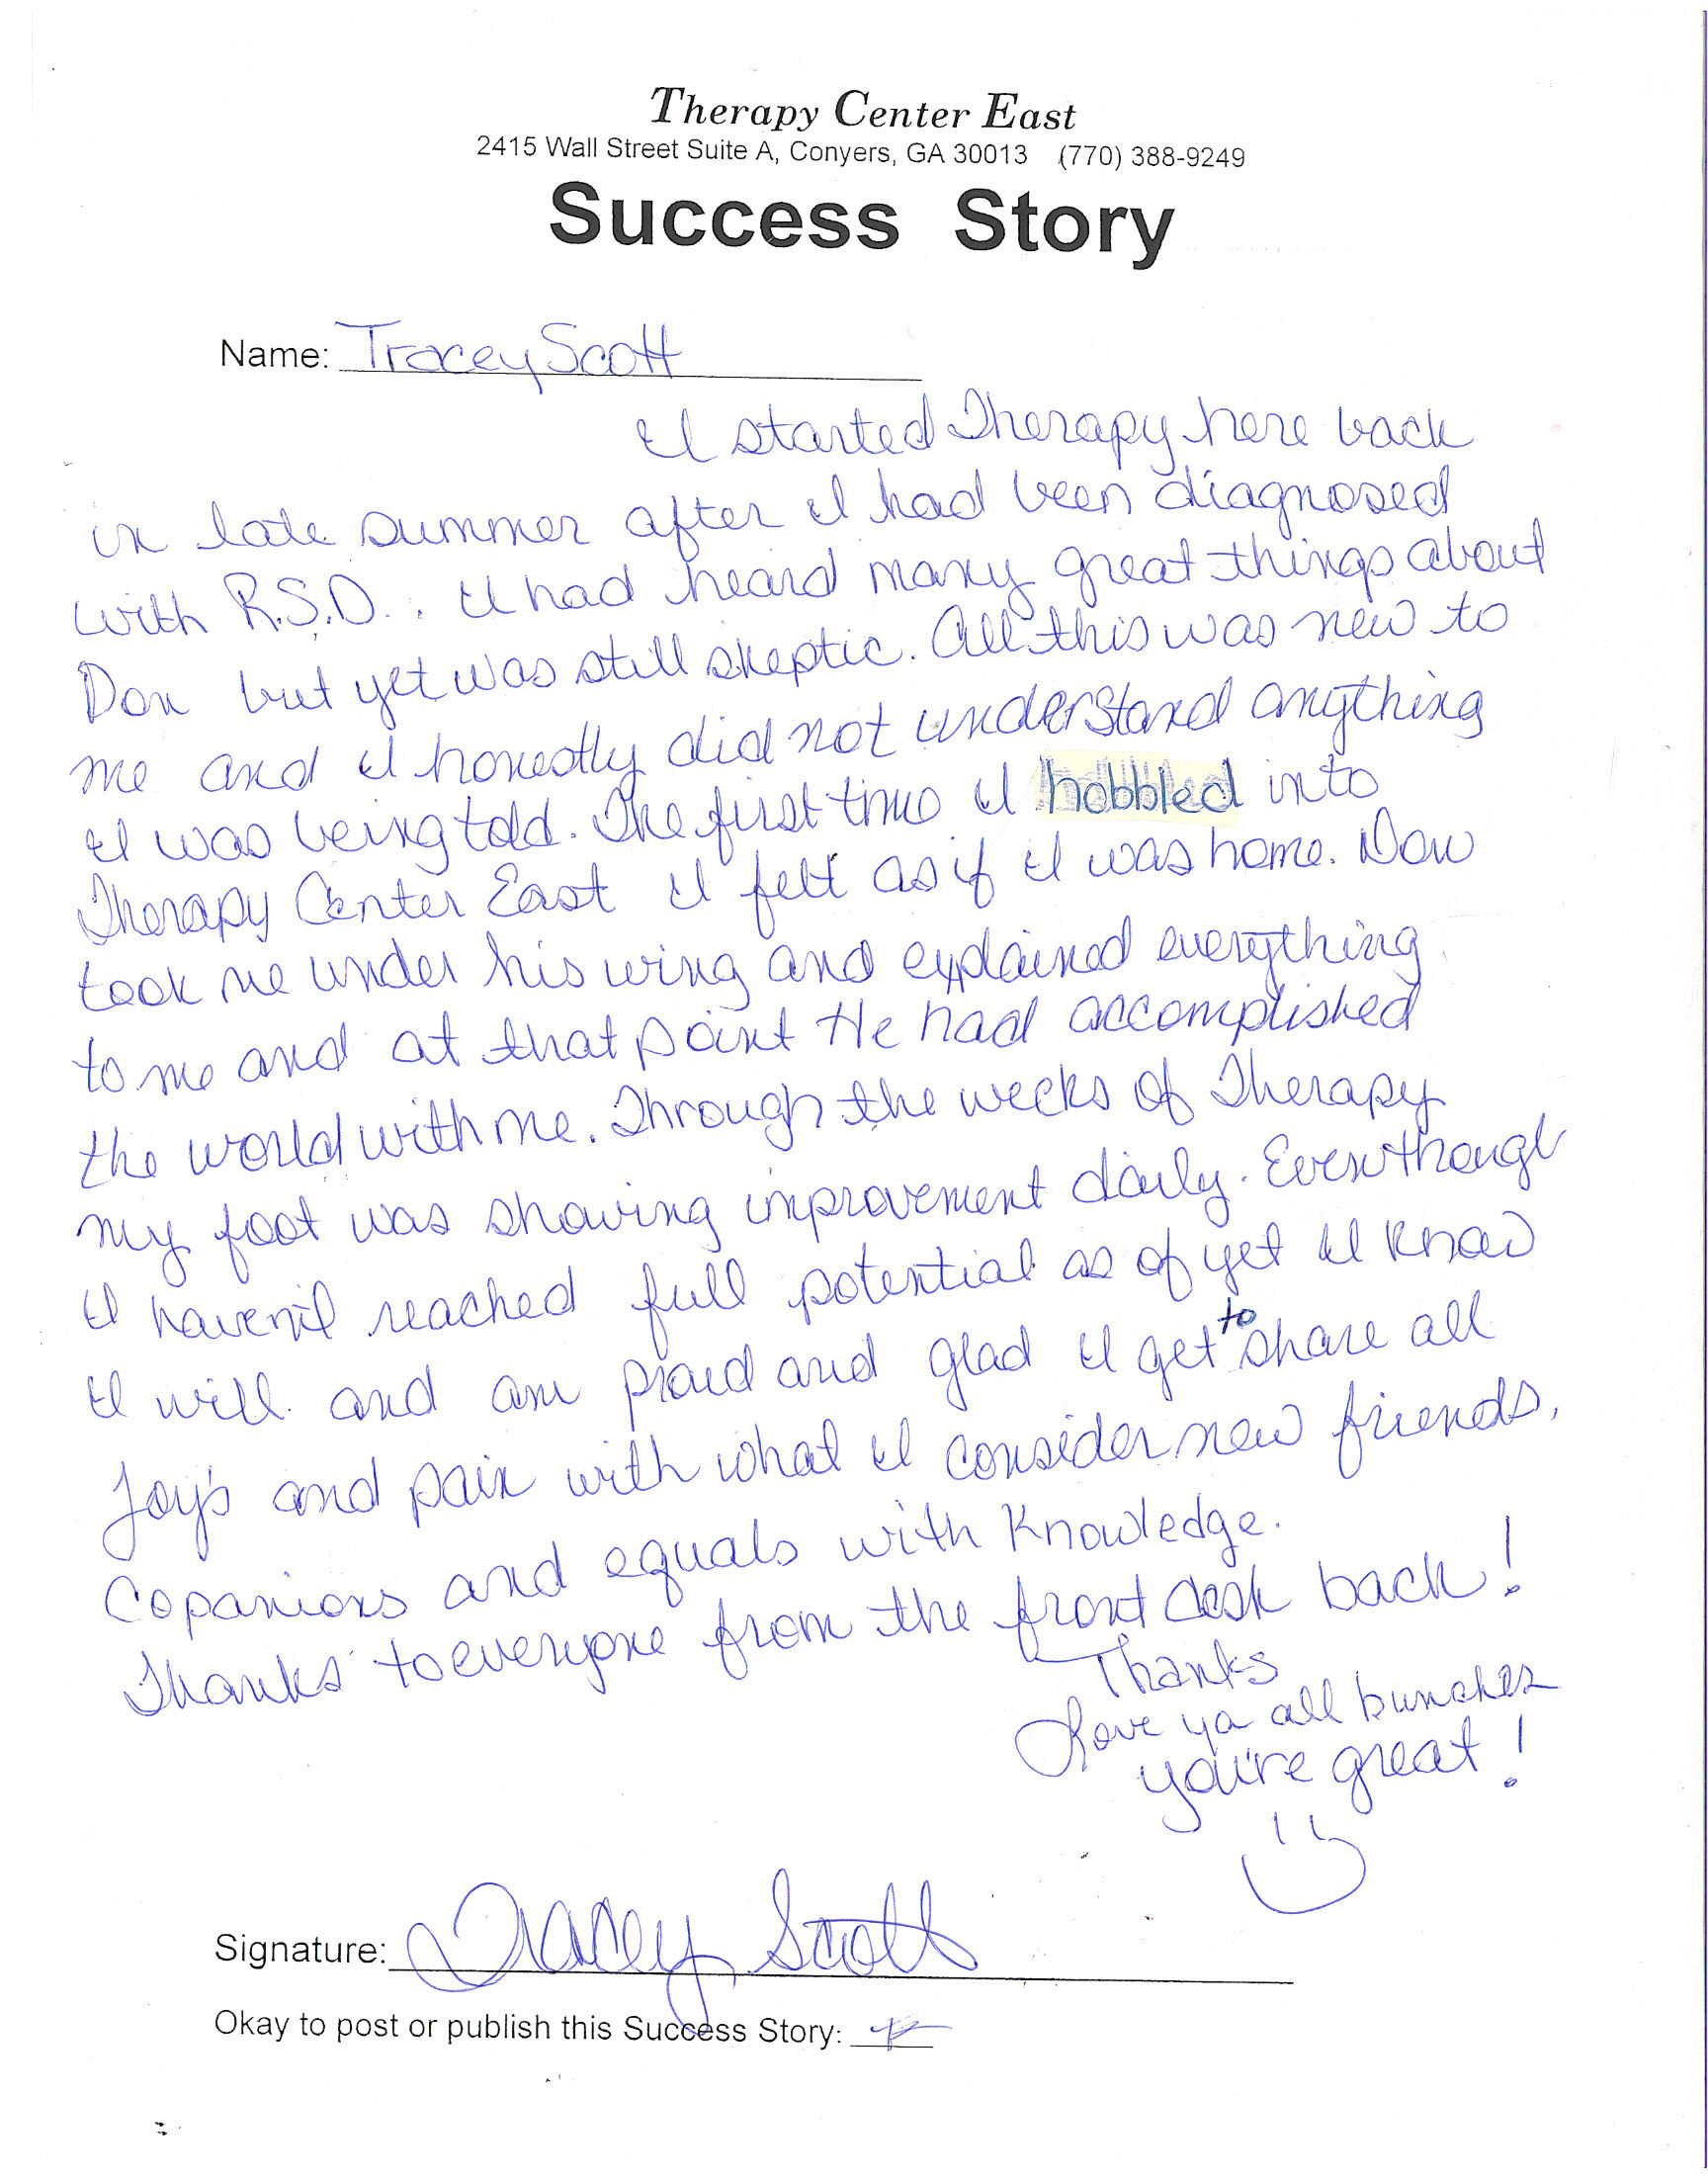 Therapy Center East
2415 Wall Street Suite A, Conyers, GA 30013 (770) 388-9249
Success Story
Name: Tracey Scott
I started Therapy here back
in late summer after I had been diagnosed
with R.S.D.. I had heard many great things about
Don but yet was still skeptic. All this was new to
me and I honestly did not understand anything
I was being told. The first time I hobbled into
Therapy Center East I felt as if I was home. Don
took me under his wing and explained everything
to me and at that point He had accomplished
the world with me. Through the weeks of Therapy
my foot was showing improvement daily. Eventhough
I haven't reached full potential as of yet I know
I will and am proud and glad I get to share all
Joy's and pain with what I consider new friends,
Copanions and equals with Knowledge.
Thanks to everyone from the front desk back!
Thanks
Love ya all bunches
you're great!
Signature: Tracey Scott
Okay to post or publish this Success Story: